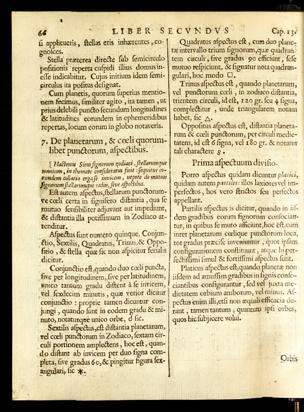 66 LIBER SECVNDVS Cap. 13.
ũ applicueris, stellas eris inhærentes, cognosces.
Stella præterea directe sub semicirculo
positionis reperta cuspidi illius domus inesse
iudicabitur. Cujus initium idem semicirculus
ita positus designat.
Cum planetis, quorum superius mentionem
fecimus, similiter agito, ita tamen, ut
prius debitis puncto secundum longitudines
& latitudines eorundem in ephemeridibus
repertas, locum eorum in globo notaveris.
7. De planetarum, & cœli quorumlibet
punctorum, aspectibus.
Est autem aspectus, stellarum punctorumve
cœli certa in signifero distantia, qua se
mutuo sensibiliter adjuvant aut impediunt,
& distantia illa potissimum in Zodiaco attenditur.
Aspectus sunt numero quinque. Conjunctio,
Sextilis, Quadratus, Trinus, & Oppositio,
& stella quæ sic non aspicitur feralis
dicitur.
Conjunctio est, quando duo cœli puncta,
sive per longitudines, sive per latitudines,
unico tantum gradu distent à se invicem,
vel sexdecim minutis, quæ vertor dicitur
conjunctio: proprie tamen dicuntur conjungi,
quando sunt in eodem gradu & minuto,
notaturque unico orbe, ☌ sic.
Sextilis aspectus, est distantia planetarum,
vel cœli punctorum in Zodiaco, sextam circuli
portionem amplectens, hoc est, quando
distant ab invicem per duo signa completa,
sive gradus 60, & pingitur figura sexangulari,
sic ⚹.
Quadratus aspectus est, cum duo planetæ
intervallo trium signorum, quæ quadrantem
circuli, sive gradus 90 efficiunt, sese
mutuo respiciunt, & signatur nota quadrangulari,
hoc modo □.
Trinus aspectus est, quando planetarum,
vel punctorum cœli, in zodiaco distantia,
trientem circuli, id est, 120 gr. seu 4 signa,
complectitur unde triangularem notam
habet, sic △.
Oppositus aspectus est, distantia planetarum
& cœli punctorum, per circuli medietatem,
id est 6 signa, vel 180 gr. & notatur
tali charactere ☍.
Prima aspectuum divisio.
Porro aspectus quidam dicuntur platici,
quidam autem partiles: illos leviores vel imperfectos,
hos vero strictos seu perfectos
appellant.
Partilis aspectus is dicitur, quando in iisdem
gradibus eorum signorum consociantur,
in quibus se mutuo afficiunt, hoc est, cum
inter planetarum cœlique punctorum loca,
tot gradus præcise inveniuntur, quot ipsum
configurationem constituunt, atque imperfectissimi
simul & fortissimi aspectus sunt.
Platicus aspectus est, quando planetæ non
iisdem ad amussim gradibus in signis consociantibus
configurantur, sed vel juxta medietatem
orbium amborum, vel minus. Aspectus
enim illi, etsi non æquali efficacia durant,
tamen tantum, quantum ipsi orbes,
quos hic subjicere volui.
Orbis